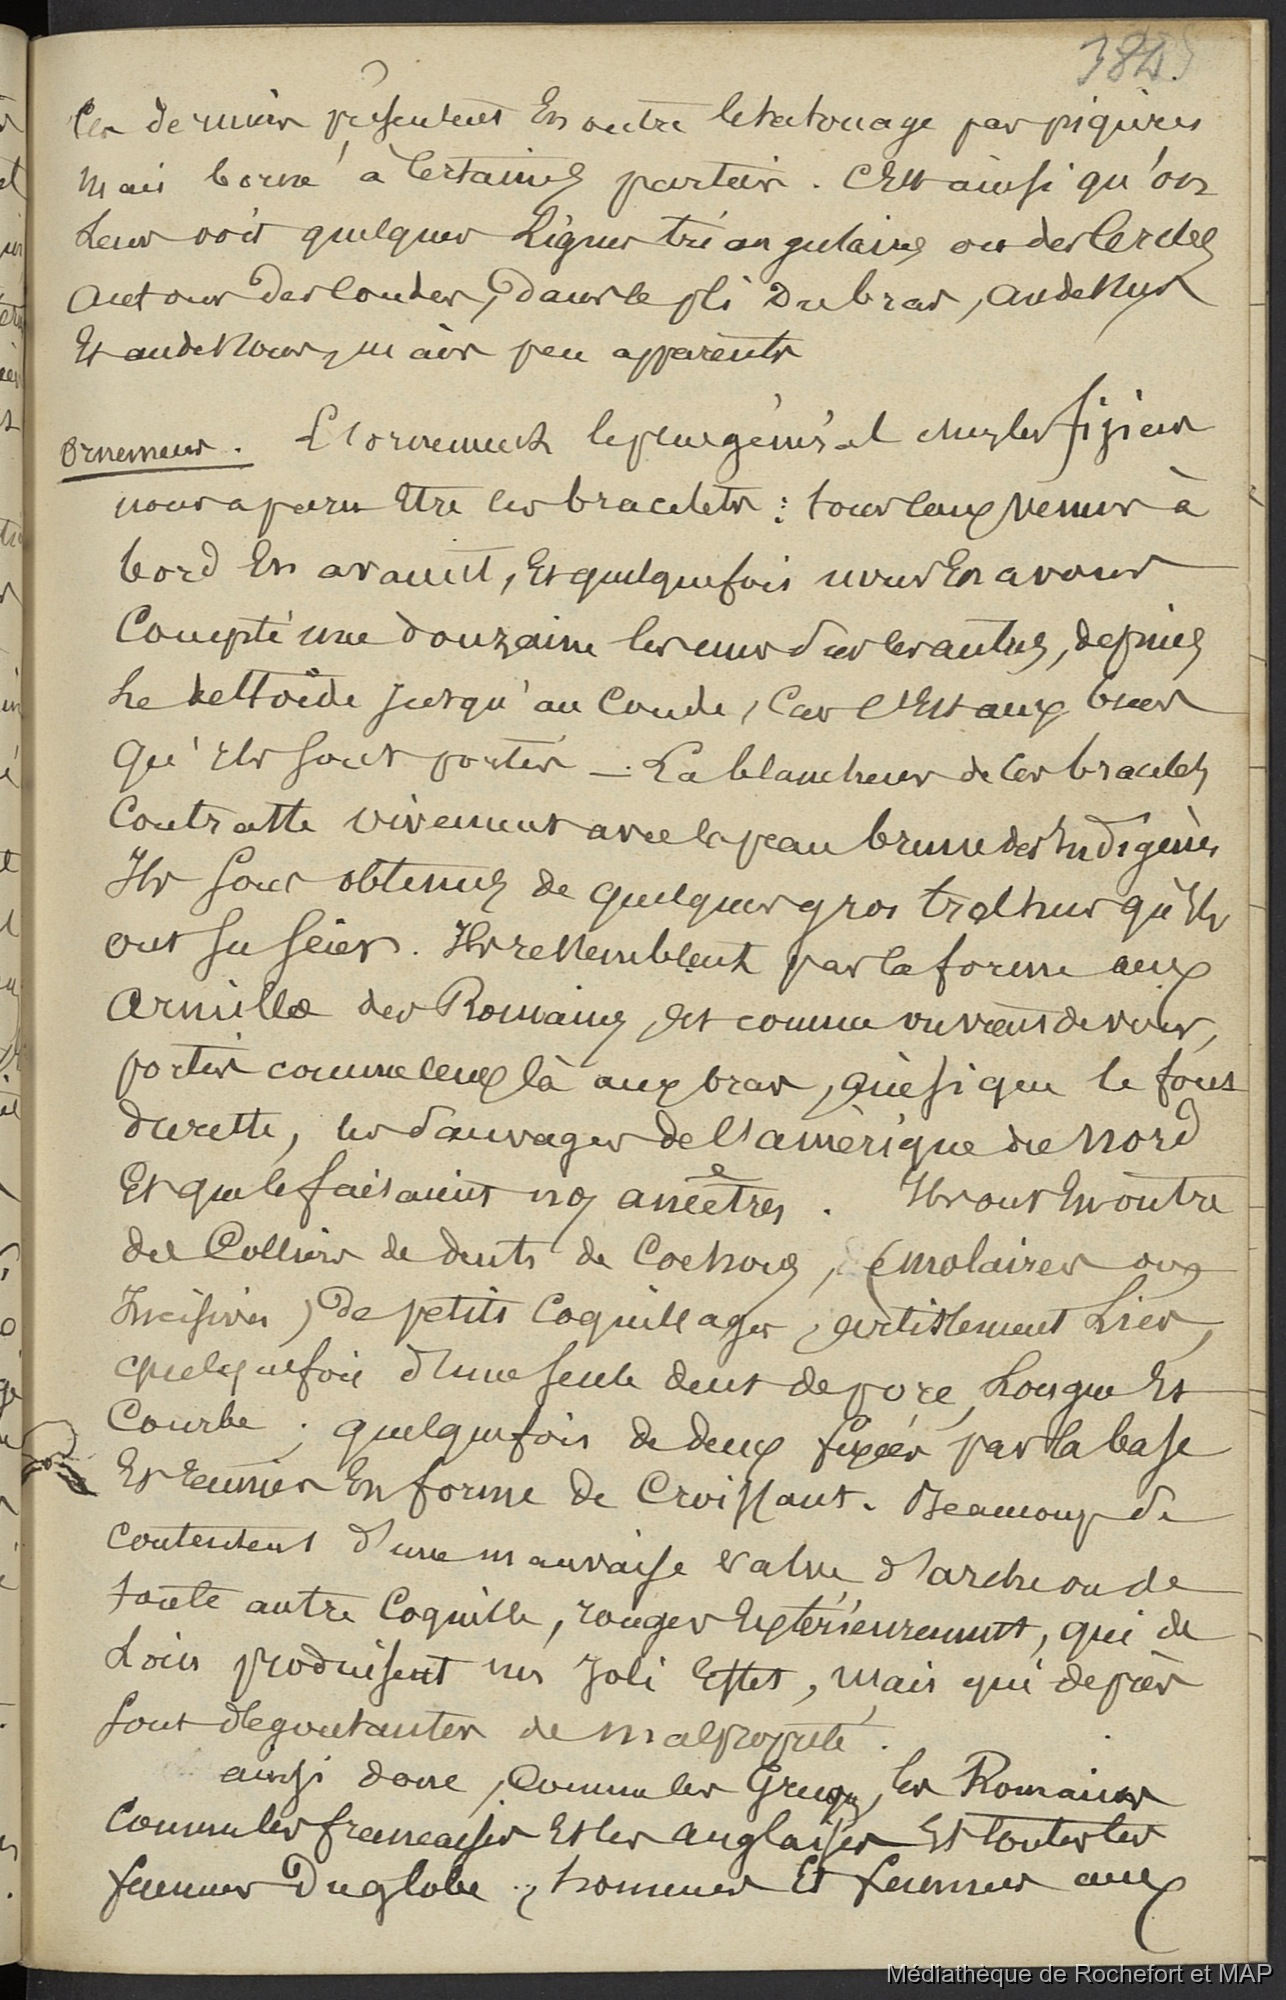 384
Ces derniers présentent En outre le tatouage par piqûres
Mais borné à Certaines parties. C'Est ainsi qu'on
Leur voit quelques Lignes triangulaires ou des Cercles
Autour des Coudes, Dans le pli Du bras, Au dessus
Et au dessous, mais peu apparents
Ornemens. L'ornement le plus général chez les fijiens
nous a paru Etre les bracelets : tous ceux venus à
bord En avaient, Et quelquefois nous En avons
Compté une douzaine les uns sur les autres, depuis
Le deltoïde jusqu'au Coude, Car C'Est aux bras
Qu'Ils sont portés _ La blancheur de Ces bracelets
Contraste vivement avec la peau brune des Indigènes
Ils sont obtenus de quelques gros trochus qu'Ils
ont su scier. Ils ressemblent par la forme aux
Armillæ des Romains, Et comme on vient de voir,
portés comme Ceux là aux bras, Ainsi que le font
du reste, les Sauvages de l'amérique du Nord
Et que le faisaient nos ancêtres. Ils ont En outre
des Colliers de dents de Cochons, (molaires ou
Incisives) De petits Coquillages, artistement Liés,
quelquefois d'une seule dent de porc, Longue Et
Courbe ; quelquefois de deux fixées par la base
Et réunies En forme de Croissant. Beaucoup se
contentent d'une mauvaise valve d'arche ou de
toute autre Coquille, rouges Extérieurement, qui de
Loin produisent un Joli Effet, Mais qui de près
sont dégoutantes de malpropreté.
ainsi donc, Comme les Grecs, les Romains
Comme les françaises Et les anglaises Et toutes les
femmes Du globe, hommes Et femmes aux
Médiathèque de Rochefort et MAP